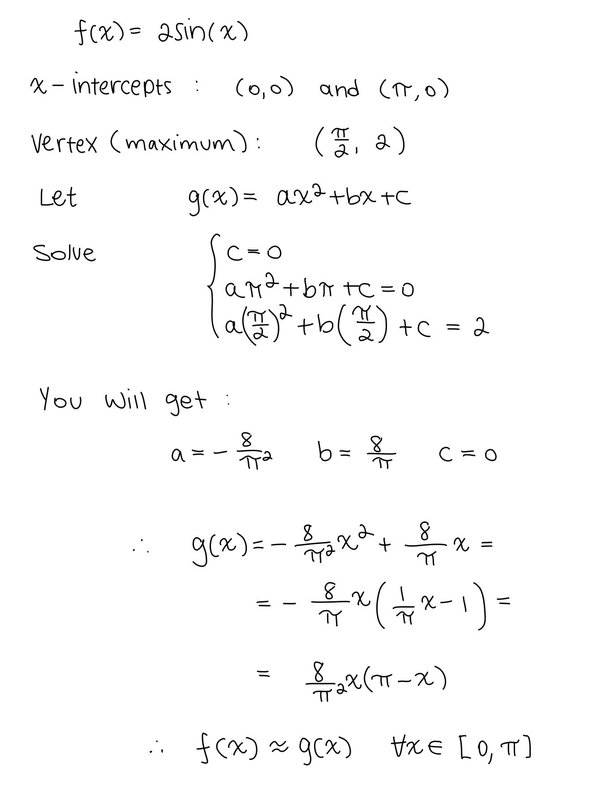 f(x) = 2sin(x)
x-intercepts : (0,0) and (π,0)
Vertex (maximum) : (π/2, 2)
Let g(x) = ax²+bx+c
Solve { c = 0
aπ²+bπ+c = 0
a(π/2)²+b(π/2)+c = 2
You will get :
a = -8/π² b = 8/π c = 0
∴ g(x) = -8/π² x² + 8/π x =
= - 8/π x (1/π x - 1) =
= 8/π² x(π-x)
∴ f(x) ≈ g(x) ∀x ∈ [0,π]